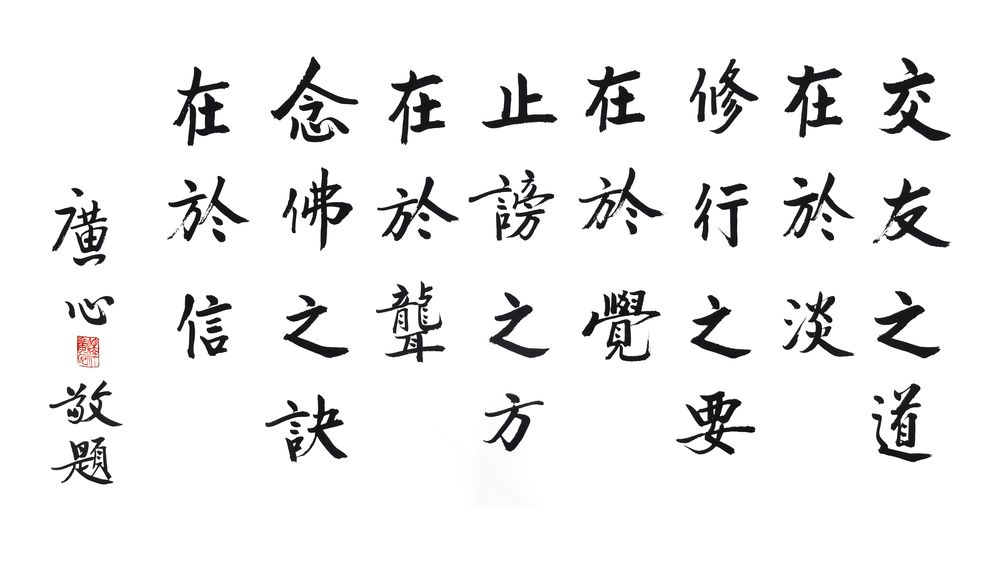 交友之道
在於淡
修行之要
在於覺
止謗之方
在於聾
念佛之訣
在於信
廣心敬題